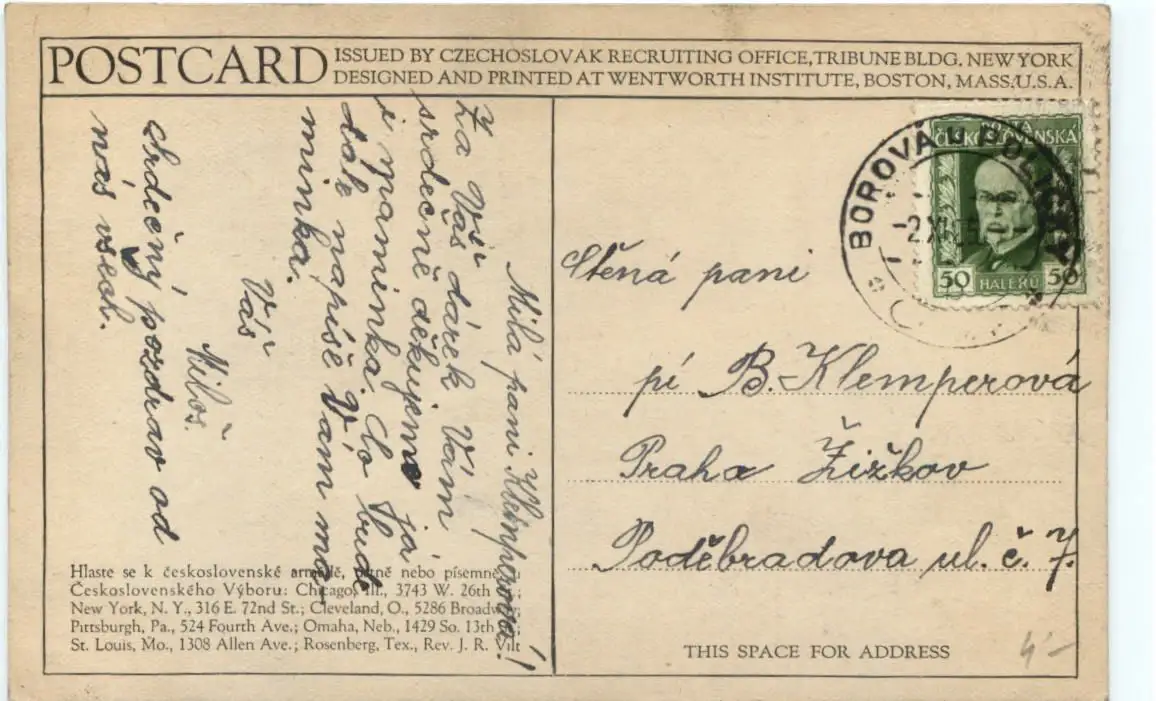 POSTCARD
ISSUED BY CZECHOSLOVAK RECRUITING OFFICE, TRIBUNE BLDG. NEW YORK
DESIGNED AND PRINTED AT WENTWORTH INSTITUTE, BOSTON, MASS. U.S.A.
Milá paní Klemperová!
Za Váš dárek Vám
srdečně děkujeme já
i maminka. Co bude
dále napíše Vám ma-
minka.
Váš
Miloš.
Srdečný pozdrav od
nás všech.
Hlaste se k československé armádě, ústně nebo písemně u
Československého Výboru: Chicago, Ill., 3743 W. 26th St.;
New York, N. Y., 316 E. 72nd St.; Cleveland, O., 5286 Broadway;
Pittsburgh, Pa., 524 Fourth Ave.; Omaha, Neb., 1429 So. 13th St.;
St. Louis, Mo., 1308 Allen Ave.; Rosenberg, Tex., Rev. J. R. Vilt
POŠTA
ČESKOSLOVENSKÁ
50 HALÉŘŮ 50
BOROVÁ u POLIČKY
2 XI
Ctěná paní
pí B. Klemperová
Praha Žižkov
Poděbradova ul. č. 7.
THIS SPACE FOR ADDRESS
4-